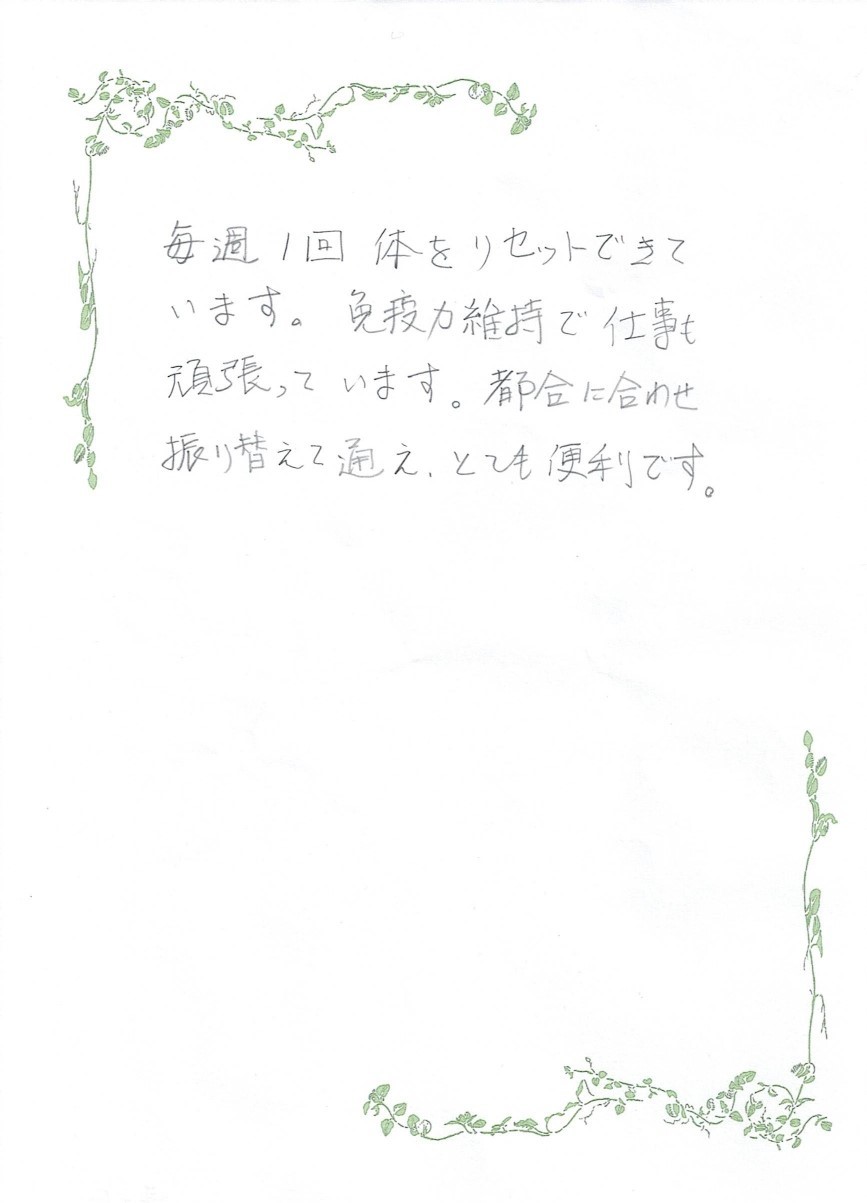 毎週1回 体をリセットできて
います。 免疫力維持で仕事も
頑張っています。都合に合わせ
振り替えて通え、とても便利です。